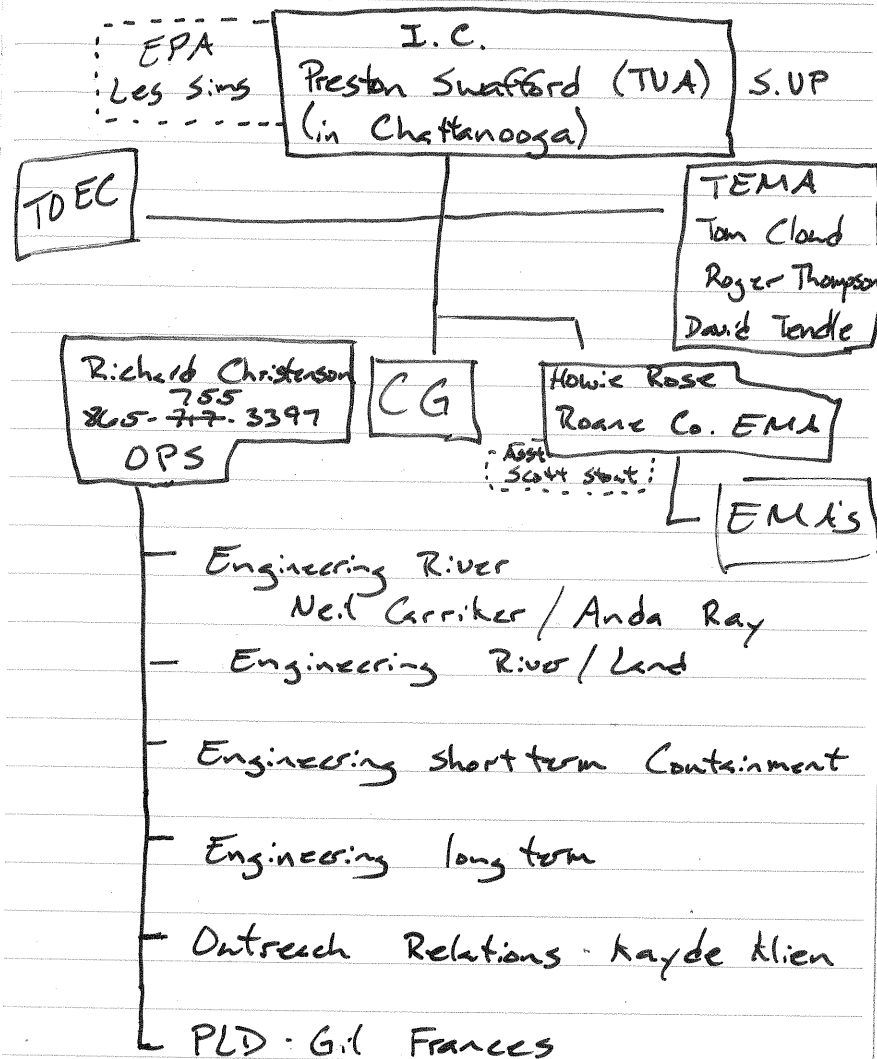 EPA
Les Sims
I.C.
Preston Swafford (TVA)
(in Chattanooga)
S.VP
TDEC
TEMA
Tom Cloud
Roger Thompson
David Tendle
Richard Christenson
755
865-717-3397
OPS
CG
Howie Rose
Roane Co. EMA
Asst
Scott Stout
EMA's
Engineering River
Neil Carriker / Anda Ray
Engineering River / Land
Engineering short term Containment
Engineering long term
Outreach Relations - Kayde Klien
PLD - Gil Frances